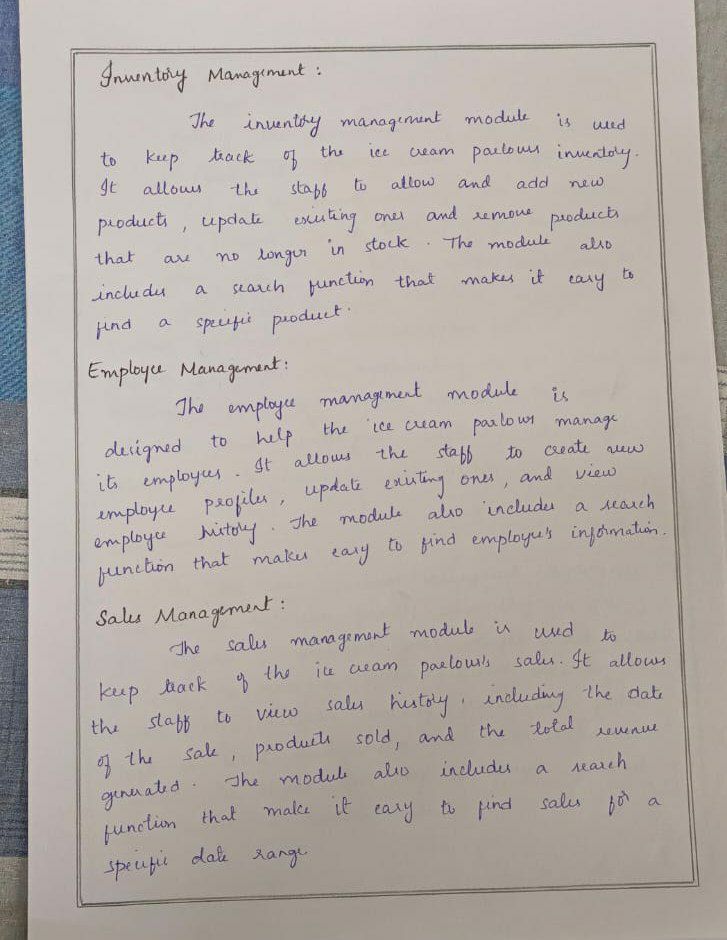 Inventory Management :
The inventory management module is used
to keep track of the ice cream parlours inventory.
It allows the staff to allow and add new
products , update existing ones and remove products
that are no longer in stock . The module also
includes a search function that makes it easy to
find a specific product .
Employee Management :
The employee management module is
designed to help the ice cream parlour manage
its employees . It allows the staff to create new
employee profiles , update existing ones , and view
employee history . The module also includes a search
function that makes easy to find employee's information .
Sales Management :
The sales management module is used to
keep track of the ice cream parlour's sales . It allows
the staff to view sales history , including the date
of the sale , products sold , and the total revenue
generated . The module also includes a search
function that make it easy to find sales for a
specific date range